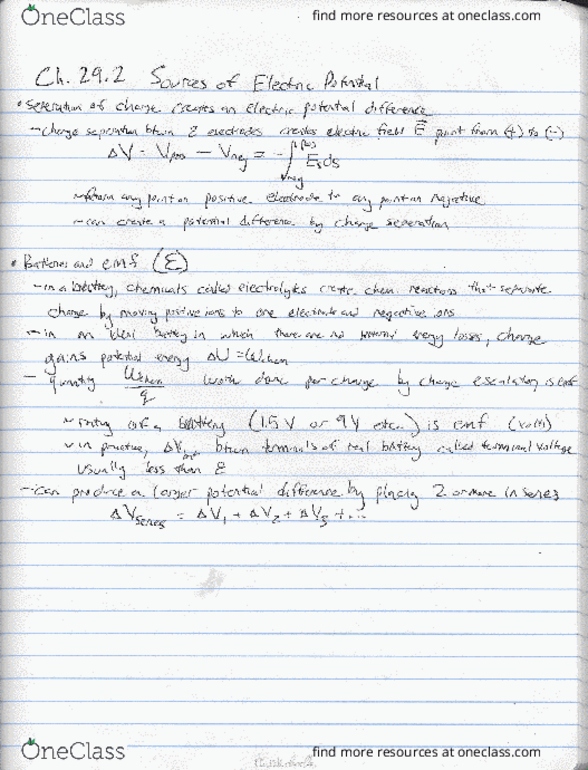 OneClass
find more resources at oneclass.com
Ch. 29.2 Sources of Electric Potential
• Seperation of charge creates an electric potential difference
- charge seperation btwn 2 electrodes creates electric field E⃗ point from (+) to (-)
ΔV = Vpos - Vneg = -∫ Es ds
Vneg
any point on positive electrode to any point on negative
- can create a potential difference by charge seperation
• Batteries and emf (Ɛ)
- in a battery, chemicals called electrolytes create chem reactions that seperate
charge by moving positive ions to one electrode and negative ions
- in an ideal battery in which there are no internal energy losses, charge
gains potential energy ΔU = Wchem
- quantity Wchem/q work done per charge by charge escalator is emf
~ rating of a battery (1.5 V or 9V etc.) is emf (volts)
~ in practice, ΔVbat btwn terminals of real battery called terminal voltage
usually less than Ɛ
- can produce a larger potential difference by placing 2 or more in series
ΔVseries = ΔV₁ + ΔV₂ + ΔV₃ + ...
OneClass
find more resources at oneclass.com